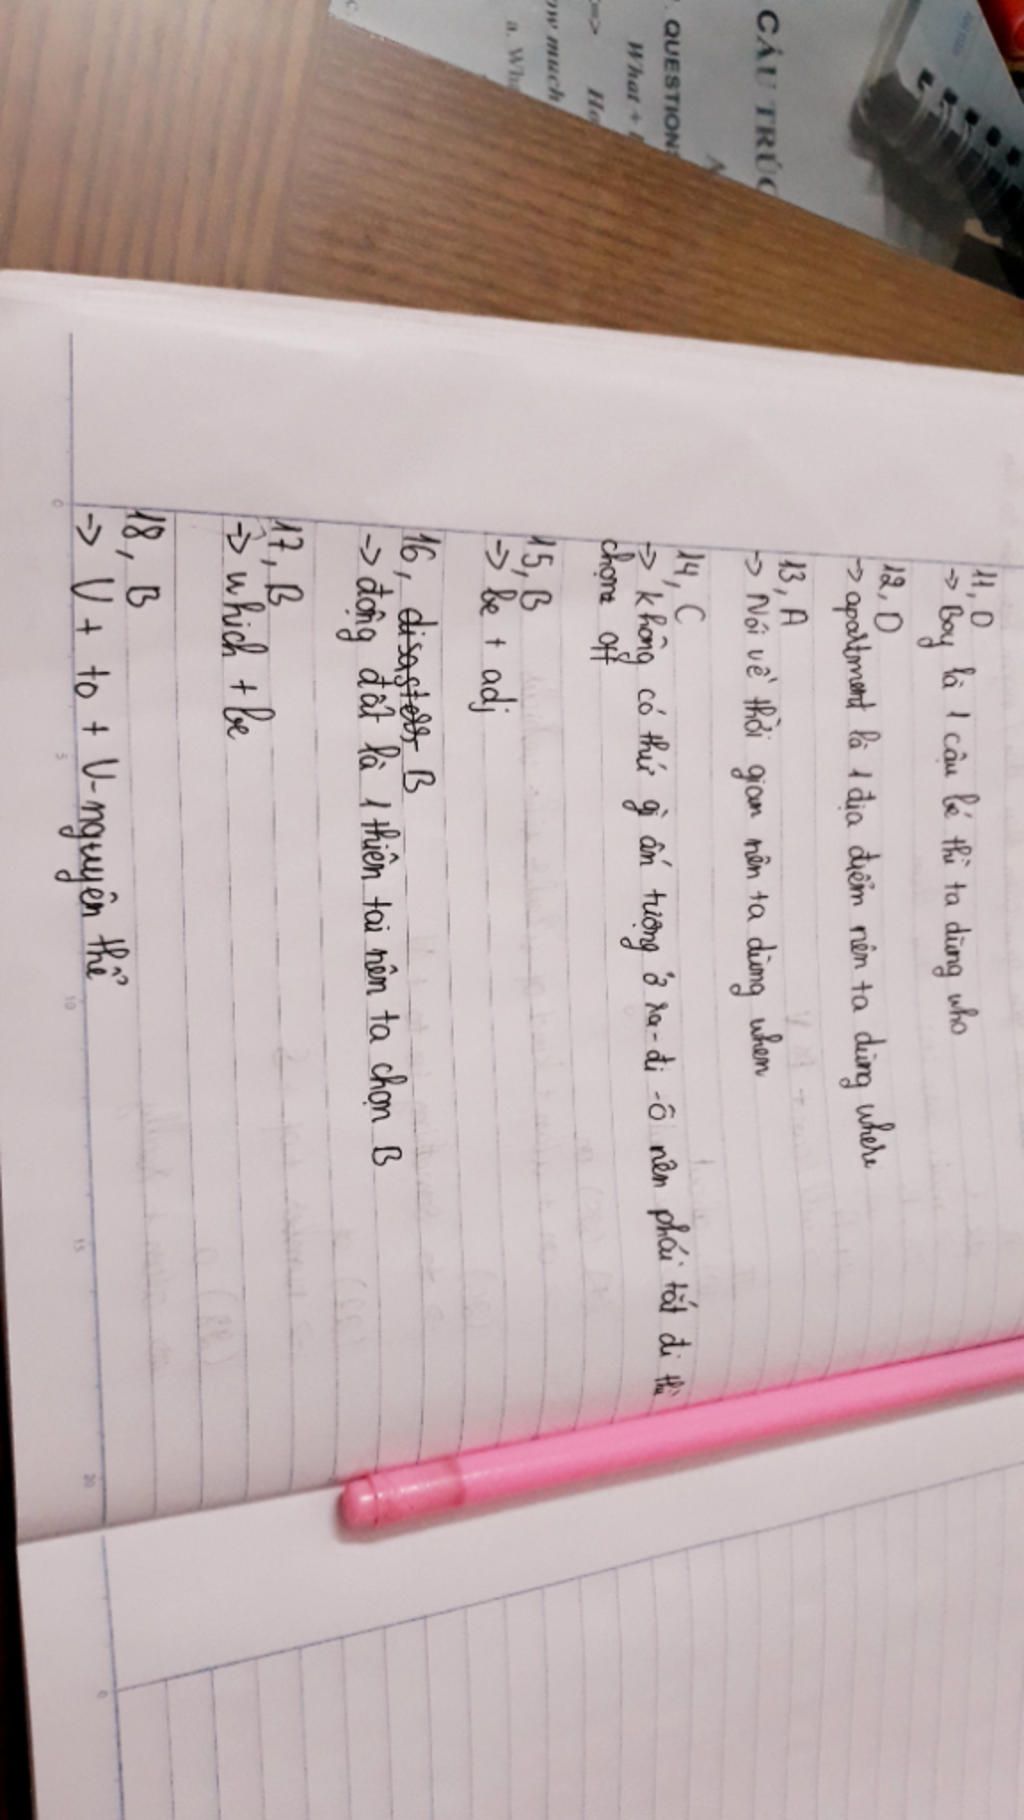 CẤU TRÚC
QUESTION
What +
How much
a. Wh
11, D
-> Boy là 1 cậu bé thì ta dùng who
12, D
-> apartment là 1 địa điểm nên ta dùng where
13, A
-> Nói về thời gian nên ta dùng when
14, C
-> không có thứ gì ấn tượng ở ra-đi-ô nên phải tắt đi thì
chọn off
15, B
-> be + adj
16, B
-> động đất là 1 thiên tai nên ta chọn B
17, B
-> which + be
18, B
-> V + to + V-nguyên thể
0
5
10
15
20
0